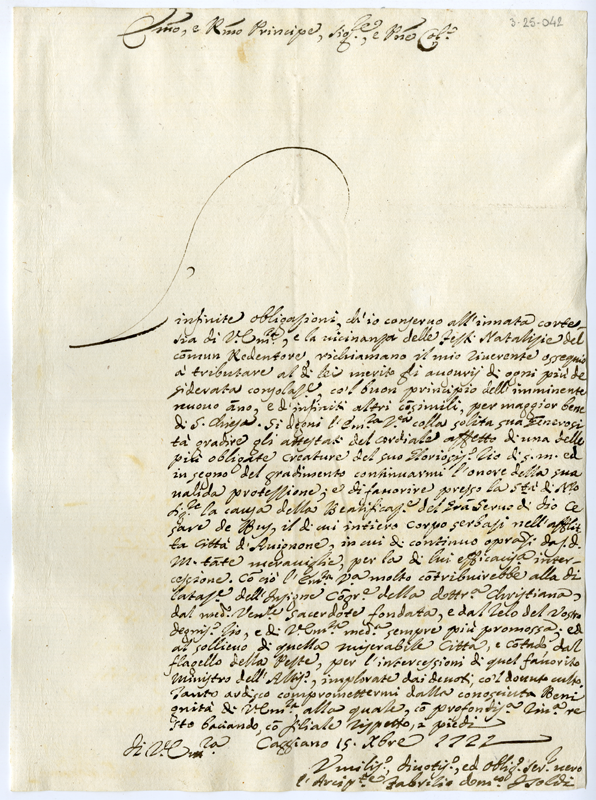 3-25-042
Em̃o, e Rm̃o Principe, Sig.re, e Pne Col.o
infinite obligazioni, ch'io conservo all'innata corte-
sia di V. Em.za, e la vicinanza delle feste Natalizie del
com̃un Redentore, richiamano il mio riverente ossequio
à tributare al di lei merito gli augurij di ogni più de
siderata consolaz.e, co'l buon principio dell'imminente
nuovo anno, ed infiniti altri cõsimili, per maggior bene
di S. Chiesa. Si degni l'Em.za V.ra colla solita sua generosi
tà gradire gli attestati del cordiale affetto di una delle
più obligate creature del suo gloriosis.o Zio di s. m. ed
in segno del gradimento continuarmi l'onore della sua
valida protessione, e di favorire presso la S.tà di N.ro
Sig.re la causa della Beatificaz.e del Gran Servo di Dio Ce
sare de Bus, il di cui intiero corpo serbasi nell'afflit
ta Città di Avignone, in cui di continuo opransi da S. D.
M. tante maraviglie, per la di lui efficaciss.a inter-
cessione. Con ciò l'Em.za V.ra molto cõtribuirebbe alla di
lataz.e dell'Insigne Cõgr.e della dottr.a Christiana,
dal med.o Ven.e sacerdote fondata, e dal zelo del vostro
degnis.o Zio, e di V. Em.za med.a sempre più promossa; ed
al sollievo di quella miserabile Città, e cõtado, dal
flagello della Peste, per l'intercessioni di quel favorito
Ministro dell'Altis.o, implorate dai devoti, co'l dovuto culto.
Tanto ardisco compromettermi dalla conosciuta Beni
gnità di V. Em.za alla quale, cõ profondis.o inc.o re
sto baciando, cõ filiale rispetto, i piedi
di V.ra Em.za Caggiano 15. Xbre 1722
Vmilis.o, divotis.o, ed oblig.o ser.e vero
l'Arcip.te Fabrizio dom.co Isoldi